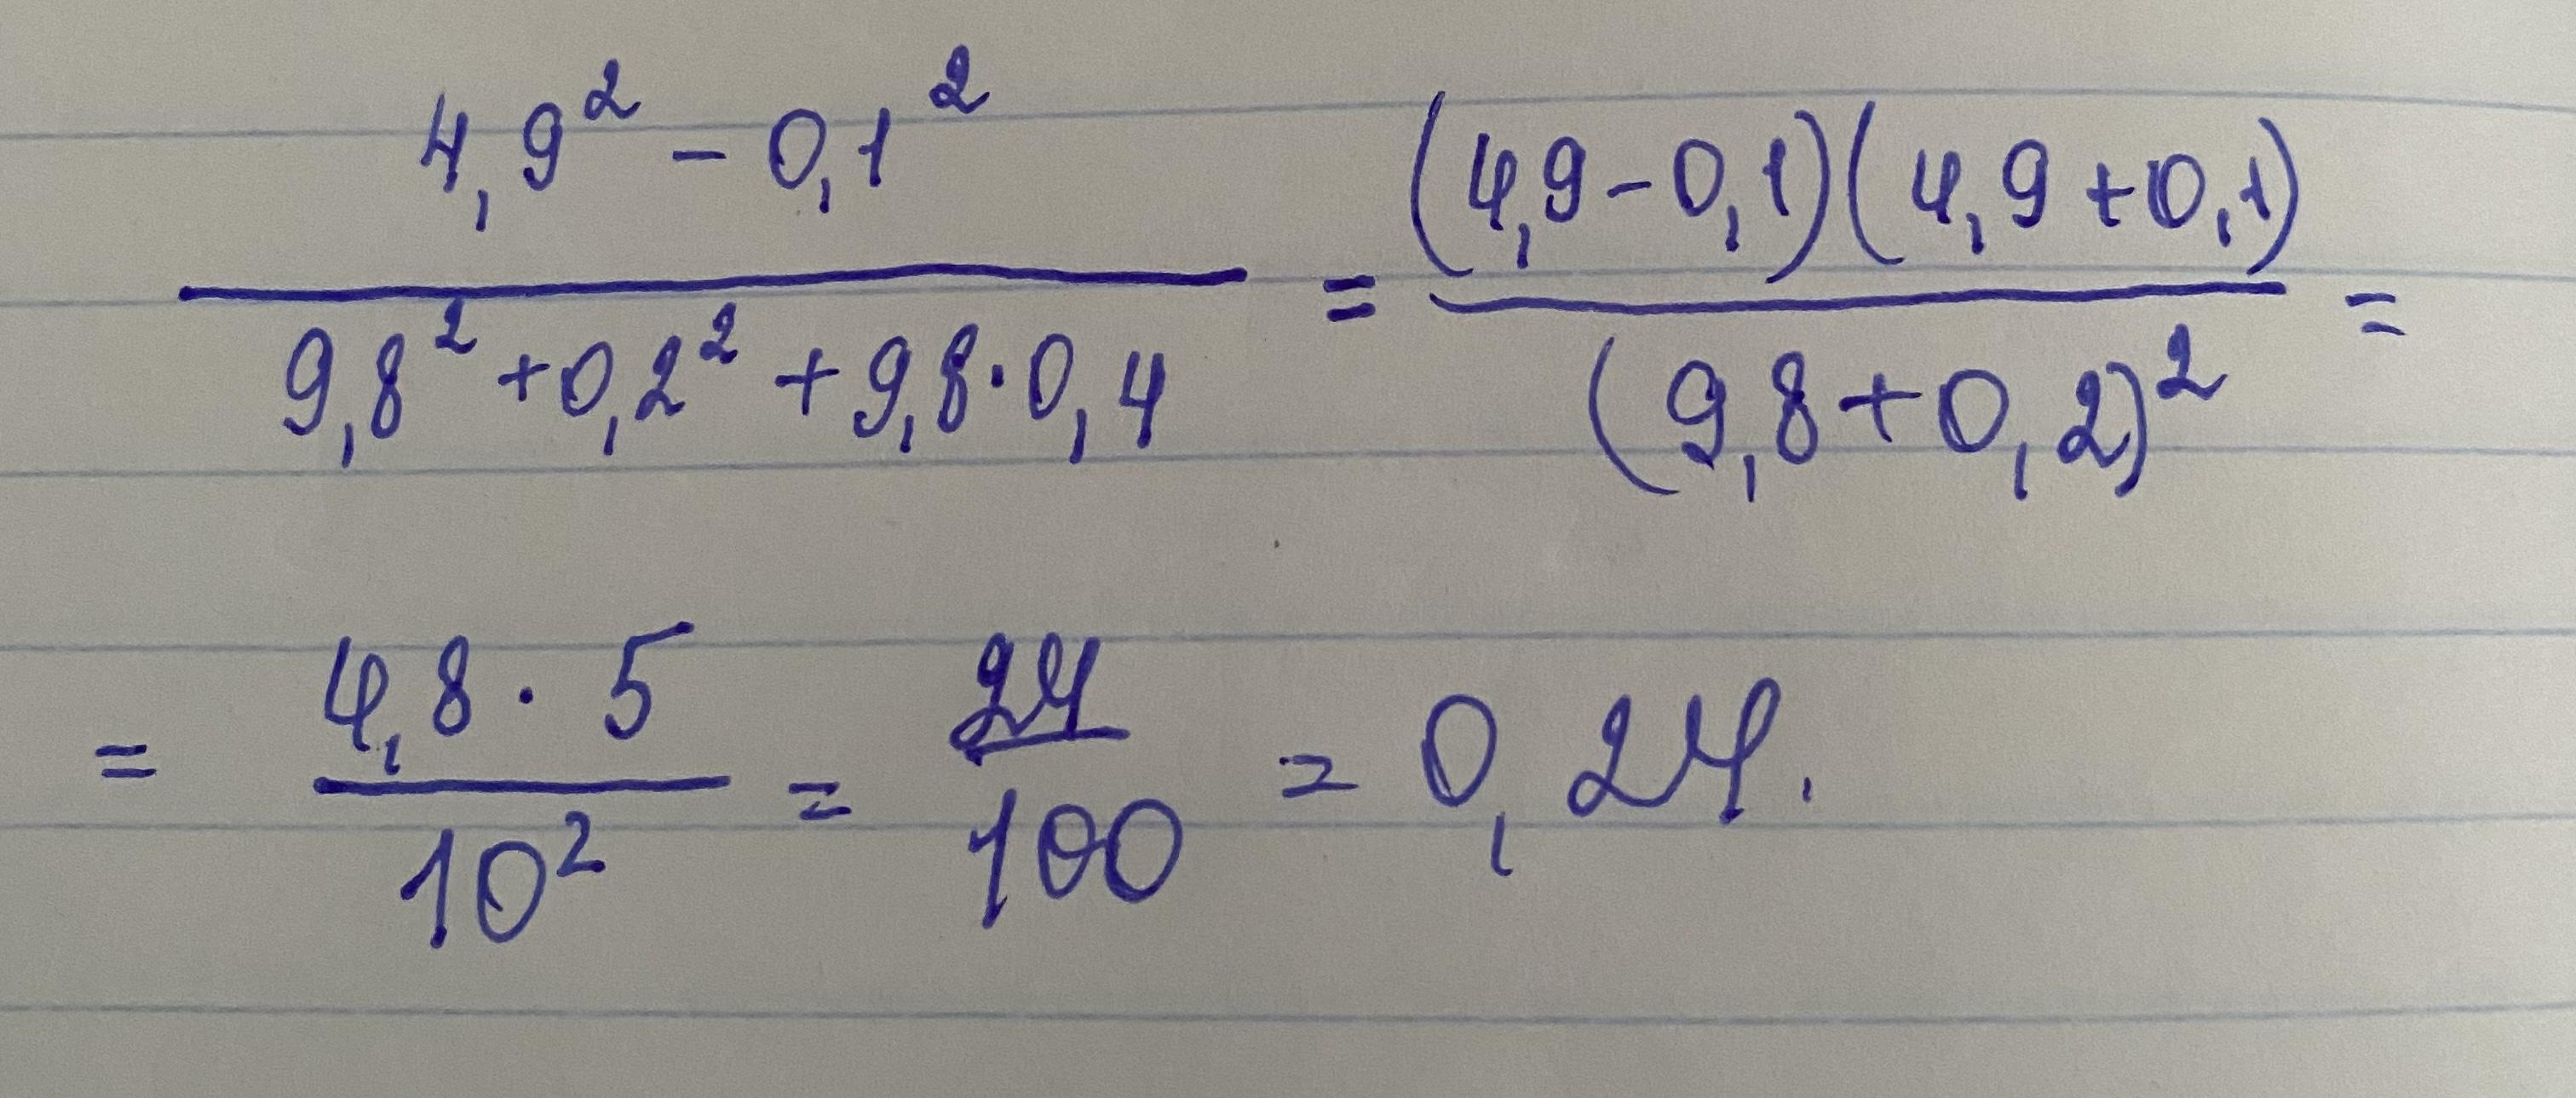 (4,9² - 0,1²)/(9,8² + 0,2² + 9,8·0,4) = ((4,9-0,1)(4,9+0,1))/((9,8+0,2)²) =
= (4,8·5)/(10²) = 24/100 = 0,24.